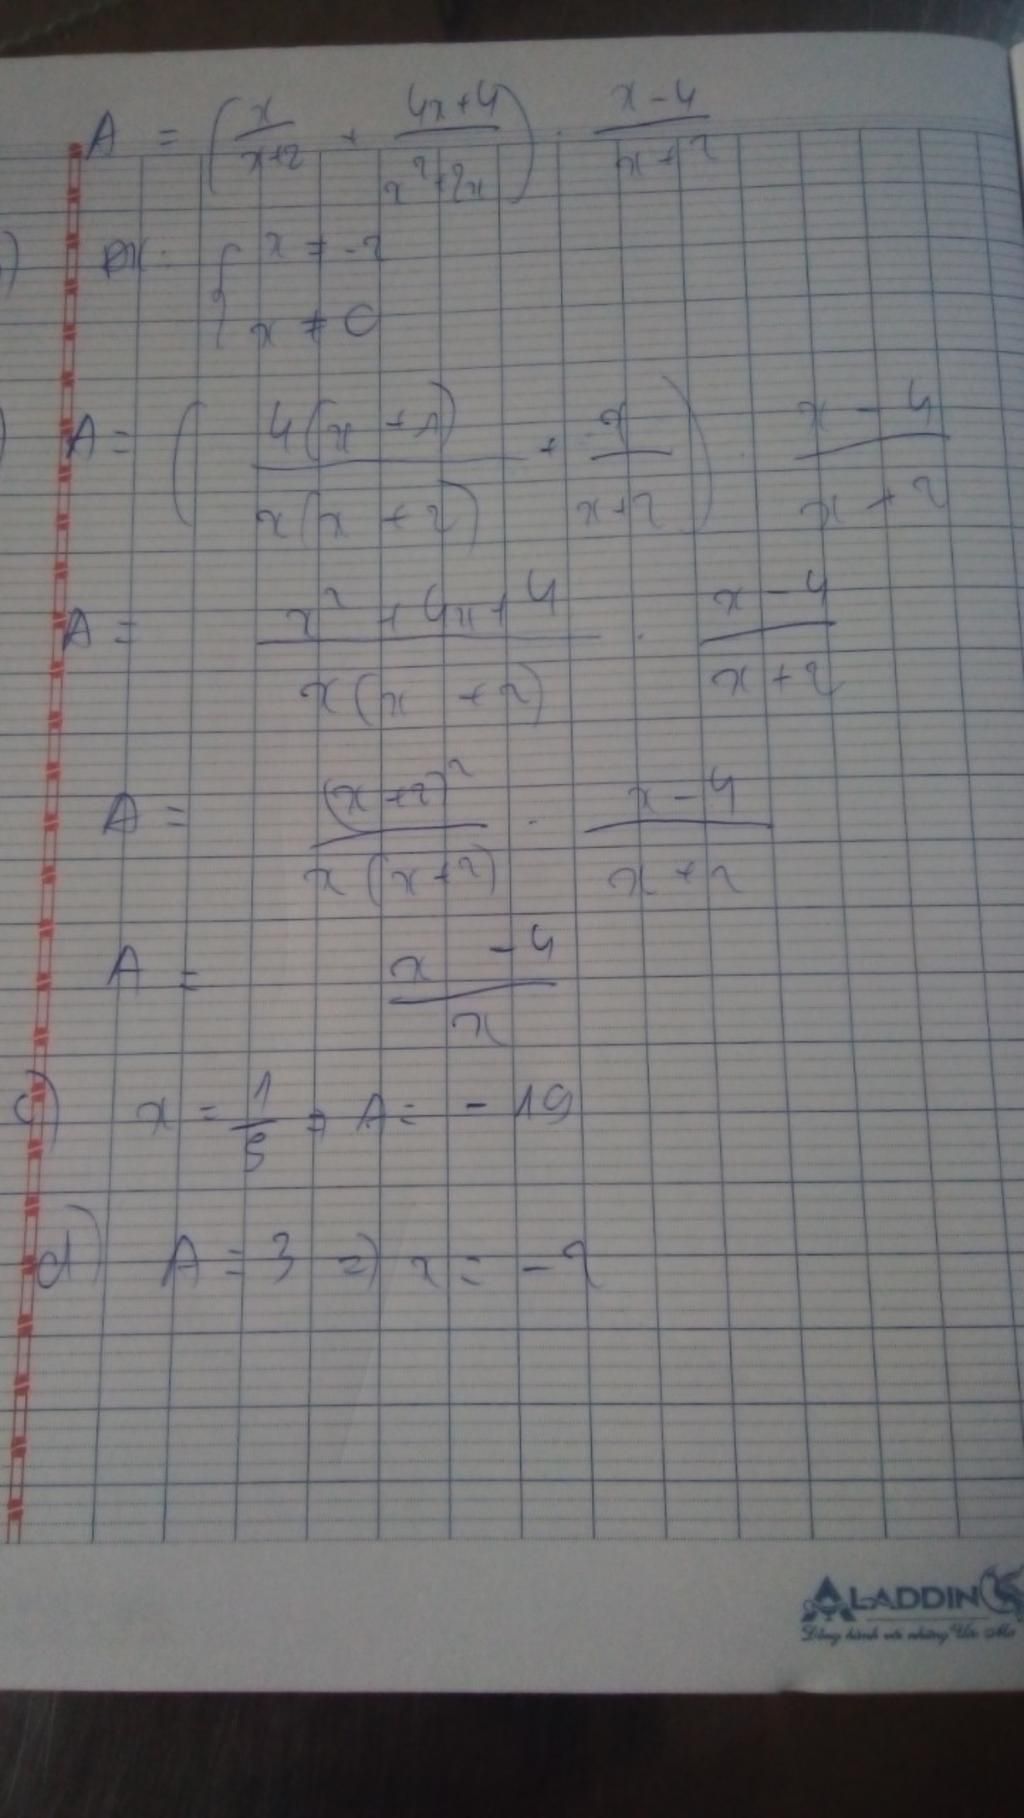 A = (x/(x+2) + (4x+4)/(x²+2x)) · (x-4)/(x+2)
ĐK: { x ≠ -2
x ≠ 0
A = (4(x+1)/(x(x+2)) + x/(x+2)) · (x-4)/(x+2)
A = (x²+4x+4)/(x(x+2)) · (x-4)/(x+2)
A = (x+2)²/(x(x+2)) · (x-4)/(x+2)
A = (x-4)/x
c) x = 1/5 => A = -19
d) A = 3 => x = -2
ALADDIN
Đồng hành với những Ước Mơ